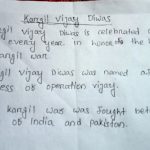 Kargil Vijay Diwas
gil Vijay Diwas is celebrated
every year in honor of the
kargil war.
gil Vijay Diwas was named
ess of operation vijay.
kargil war was fought bet
of India and pakistan.